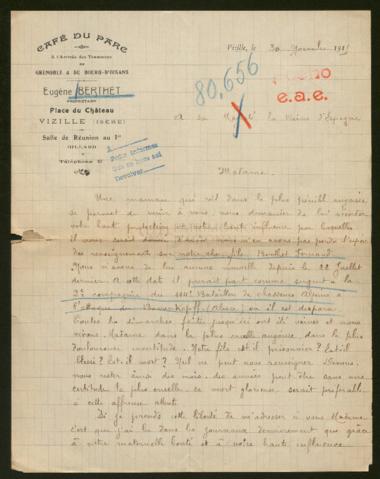 CAFÉ DU PARC
à l'Arrivée des Tramways
DE
GRENOBLE & DU BOURG-D'OISANS
Eugène BERTHET
PROPRIÉTAIRE
Place du Château
VIZILLE (ISÈRE)
Salle de Réunion au 1er
BILLARD
Téléphone
Vizille, le 30 Novembre 191
80,656
e.a.e.
A sa Majesté la Reine d'Espagne
Madame,
Une maman qui vit dans la plus pénible angoisse
se permet de venir à vous, vous demander de lui accorder
votre haute protection et votre haute influence par lesquelles
il nous serait
des renseignements sur notre cher fils Berthet Fernand.
Nous n'avons de lui aucune nouvelle depuis le 22 Juillet
dernier. A cette date il prenait part comme sergent à la
2e compagnie du Bataillon de chasseurs Alpins à
l'attaque du (Alsace) où il est disparu
toutes les démarches faites jusqu'ici ont été vaines et nous
vivons, Madame dans la plus cruelle angoisse, dans la plus
douloureuse incertitude. Notre fils est-il prisonnier? Est-il
blessé? Est-il mort? Nul ne peut nous renseigner. Devons-
nous rester ainsi des mois, des années peut être sans une
certitude la plus cruelle, sa mort glorieuse, serait préférable
à cette affreuse attente.
Si je prends cette liberté de m'adresser à vous Madame
c'est que j'ai lu dans les journaux dernièrement que grâce
à votre maternelle bonté et à votre haute influence